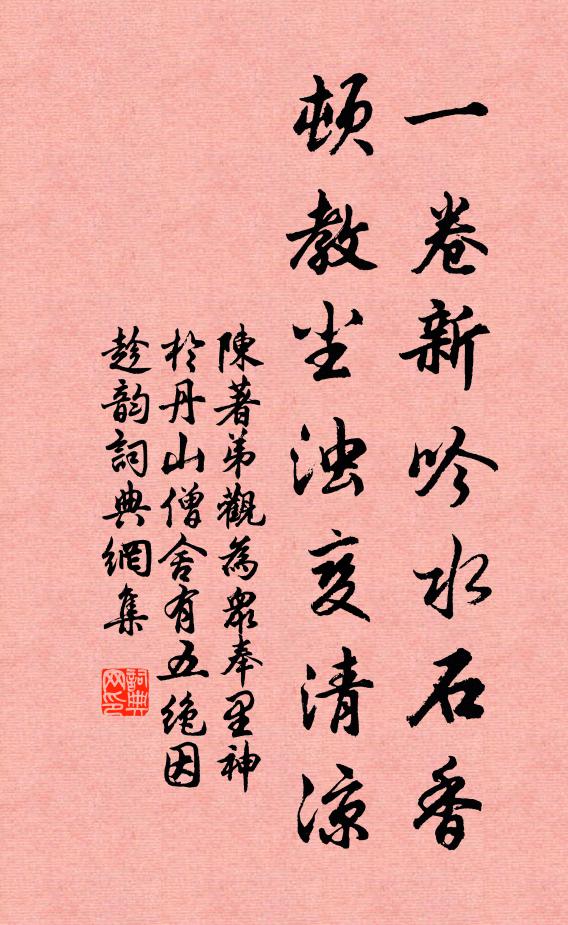 一卷新吟水石香
頓教尘浊变清凉
陳著弟觀為眾奉里神
於丹山僧舍有五绝因
趁韵詞典網集
詞典网印